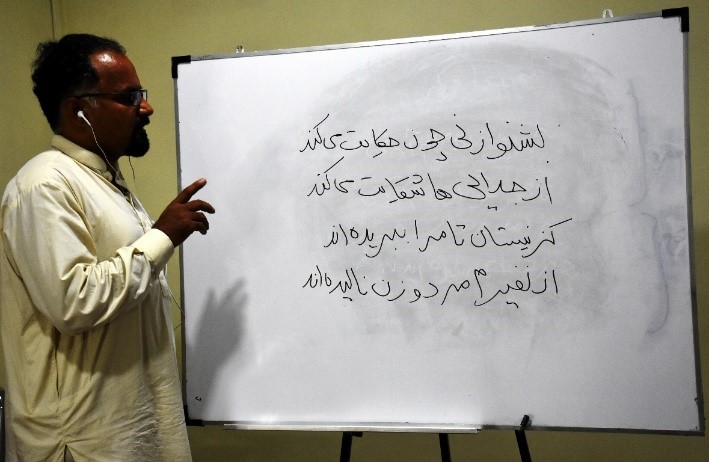 بشنو از نی چون حکایت می‌کند
از جدایی ها شکایت می‌کند
کز نیستان تا مرا ببریده‌اند
از نفیرم مرد و زن نالیده‌اند